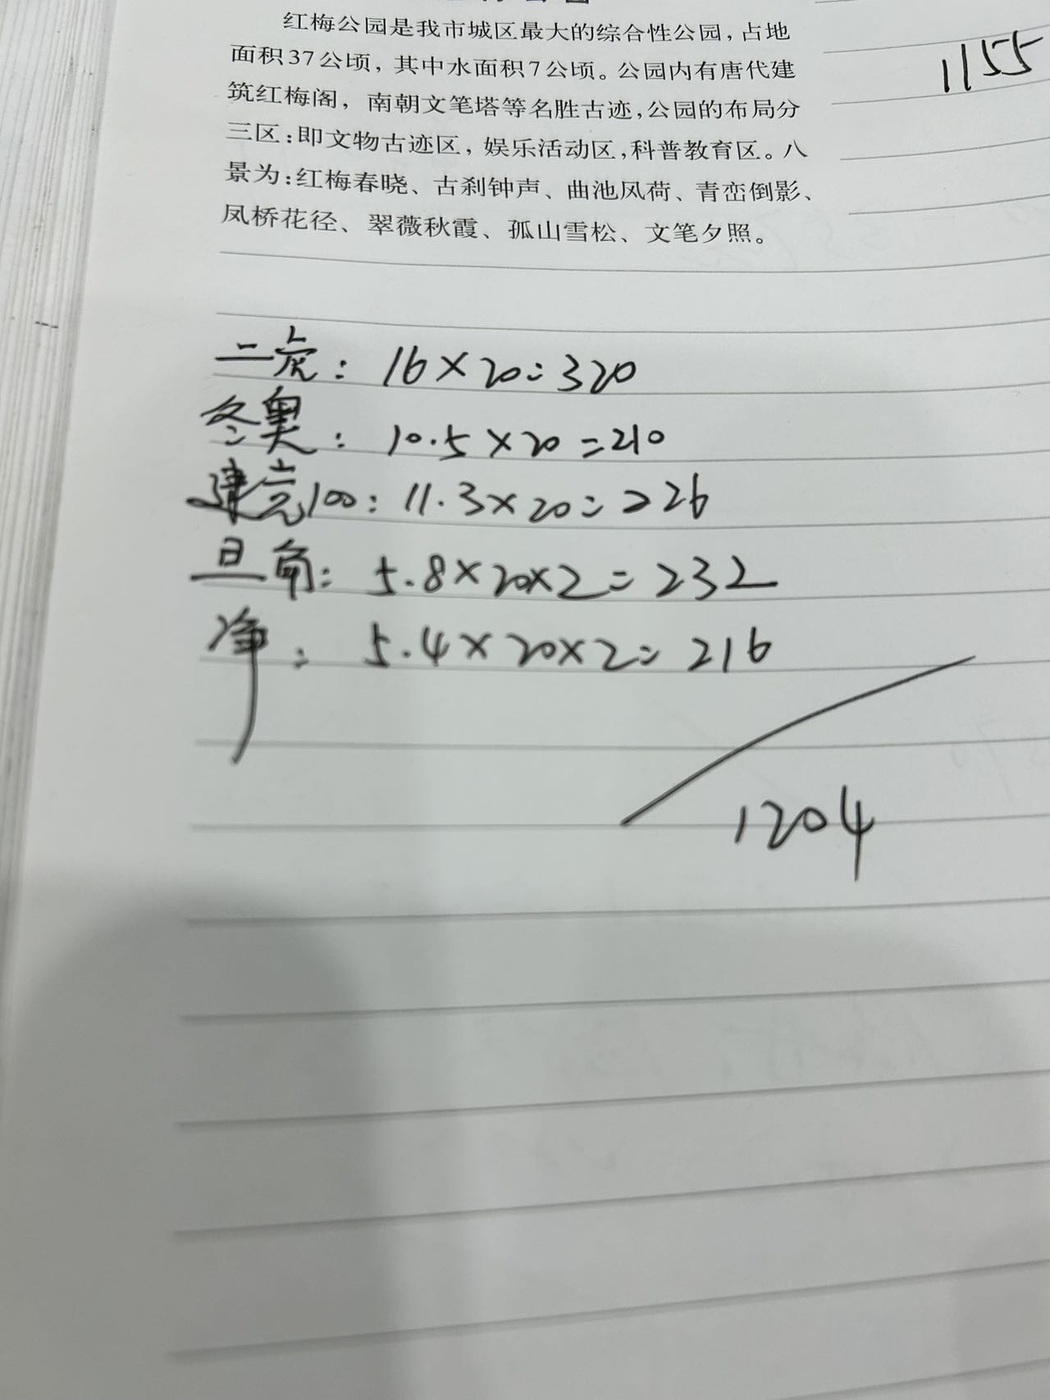 红梅公园是我市城区最大的综合性公园，占地
面积37公顷，其中水面积7公顷。公园内有唐代建
筑红梅阁，南朝文笔塔等名胜古迹，公园的布局分
三区：即文物古迹区，娱乐活动区，科普教育区。八
景为：红梅春晓、古刹钟声、曲池风荷、青峦倒影、
凤桥花径、翠薇秋霞、孤山雪松、文笔夕照。
1155
二虎：16×20=320
冬奥：10.5×20=210
建党100：11.3×20=226
旦角：5.8×20×2=232
净：5.4×20×2=216
1204